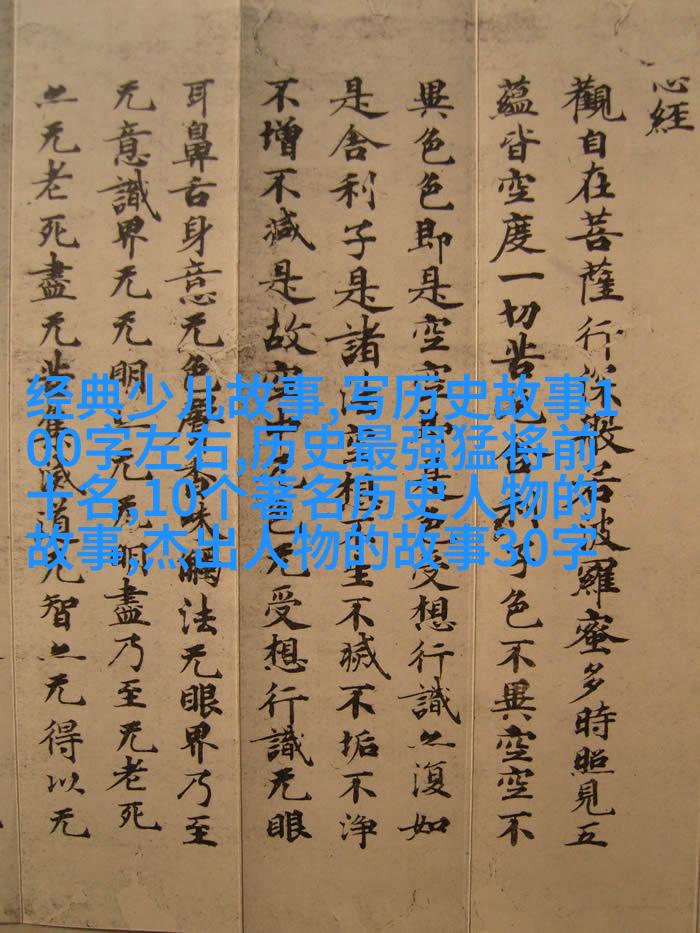 心經
觀自在菩薩行深般若波羅蜜多時照見五
蘊皆空度一切苦厄舍利子色不異空空不
異色色即是空空即是色受想行識亦復如
是舍利子是諸法空相不生不滅不垢不淨
不增不減是故空中无色无受想行識无眼
耳鼻舌身意无色聲香味觸法无眼界乃至
无意識界无无明亦无无明盡乃至无老死
亦无老死盡无苦集滅道无智亦无得以无
经典少儿故事,写历史故事1
00字左右,历史最强猛将前
十名,10个著名历史人物的
故事,杰出人物的故事30字